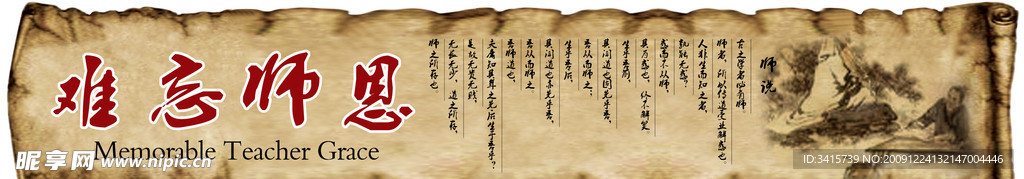 难忘师恩
Memorable Teacher Grace
师说
古之学者必有师。
师者，所以传道受业解惑也
人非生而知之者，
孰能无惑？
惑而不从师，
其为惑也，终不解矣
生乎吾前，
其闻道也固先乎吾，
吾从而师之；
生乎吾后，
其闻道也亦先乎吾，
吾从而师之
吾师道也，
夫庸知其年之先后生于吾乎？
是故无贵无贱，
无长无少，道之所存，
师之所存也
昵享网 www.nipic.cn
ID:3415739 NO:20091224132147004446